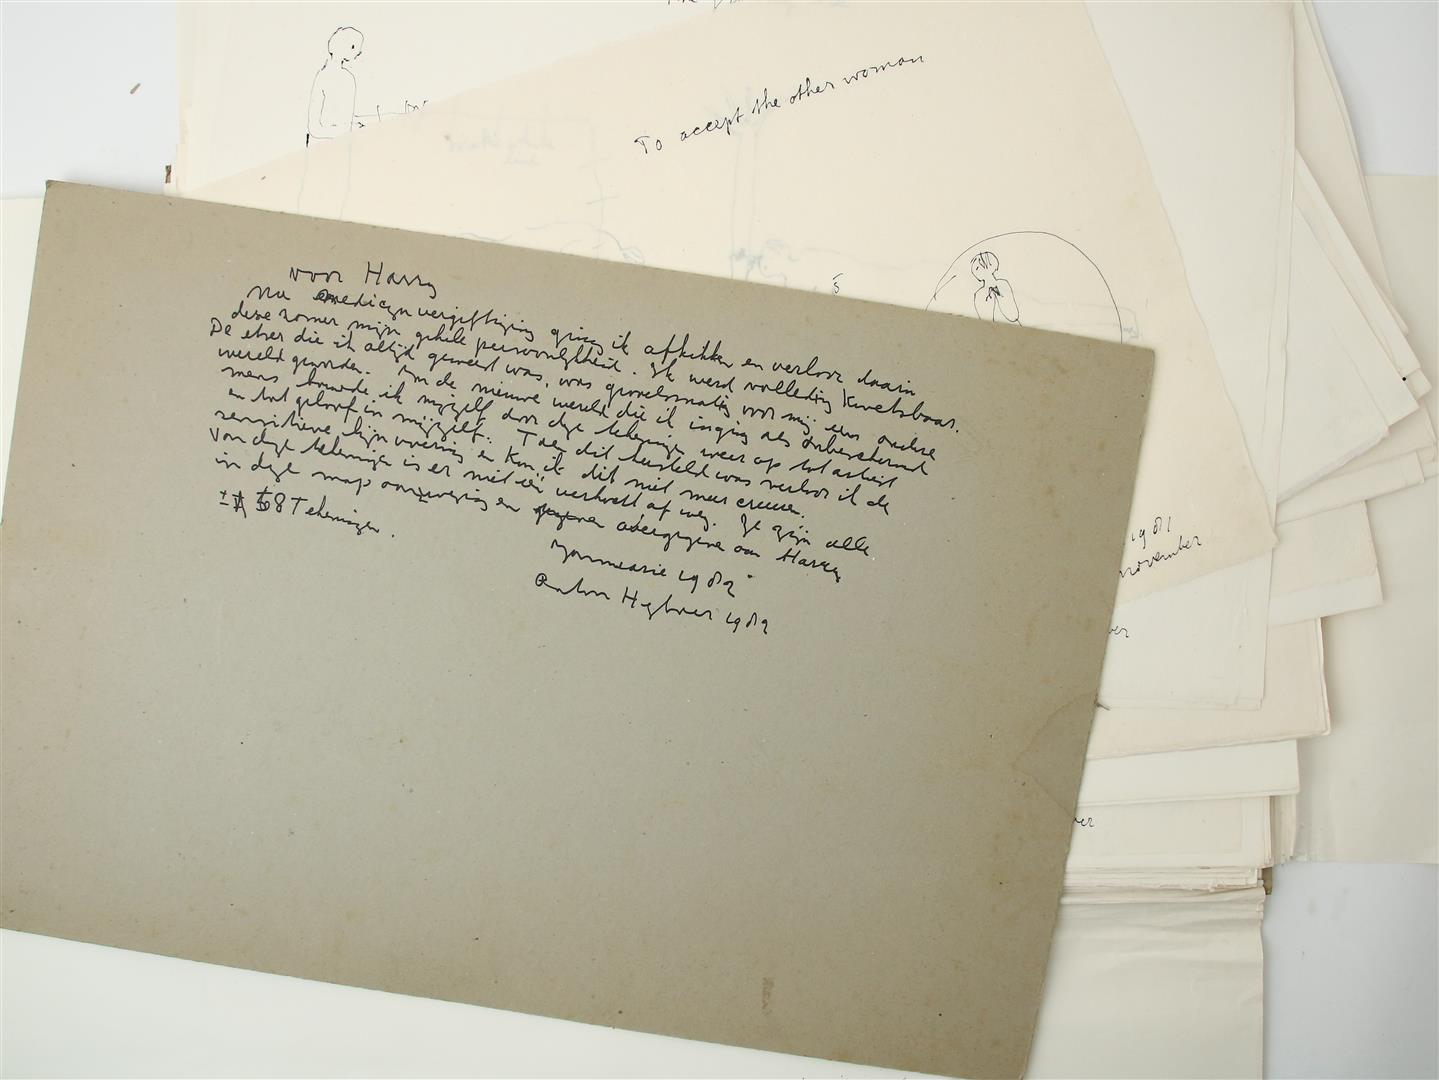 To accept the other woman
voor Harry
Na medicijn vergiftiging ging ik afkikken en verloor daarin
deze zomer mijn gehele persoonlijkheid. Ik werd volledig kwetsbaar.
De etser die ik altijd geweest was, was gevoelsmatig voor mij een andere
wereld geworden. In de nieuwe wereld die ik inging als onbeschermd
mens bouwde ik mijzelf door deze tekeningen weer op tot arbeid
en tot geloof in mijzelf. Toen dit hersteld was verloor ik de
sensitieve lijnvoering en kon ik dit niet meer creeren.
Van deze tekeningen is er niet één verkocht of weg. Ze zijn alle
in deze map aanwezig en overgegeven aan Harry
± 68 Tekeningen.
1982
Anton Heyboer 1982
1981
november